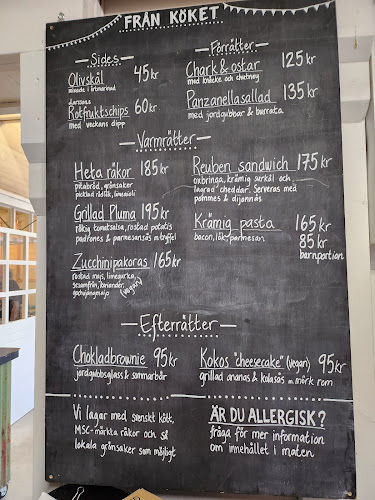 FRÅN KÖKET
Sides
Olivskål 45 kr
minade i örtmarinad
Larssons
Rotfruktschips 60 kr
med veckans dipp
Förrätter
Chark & ostar 125 kr
med knäcke och chutney
Panzanellasallad 135 kr
med jordgubbar & burrata
Varmrätter
Heta räkor 185 kr
pitabröd, grönsaker
picklad rödlök, limeaioli
Grillad Pluma 195 kr
rökig tomatsalsa, rostad potatis
padrones & parmesansås m. tryffel
Zucchinipakoras 165 kr
rostad majs, limegurka,
sesamfrön, koriander,
gochujangmajo (vegan)
Reuben sandwich 175 kr
oxbringa, krämig surkål och
lagrad cheddar. Serveras med
pommes & dijonnäs
Krämig pasta 165 kr
bacon, lök, parmesan
85 kr
barnportion
Efterrätter
Chokladbrownie 95 kr
jordgubbsglass & sommarbär
Kokos "cheesecake" (vegan) 95 kr
grillad ananas & kolasås m. mörk rom
Vi lagar med svenskt kött,
MSC-märkta räkor och så
lokala grönsaker som möjligt
ÄR DU ALLERGISK?
fråga för mer information
om innehållet i maten